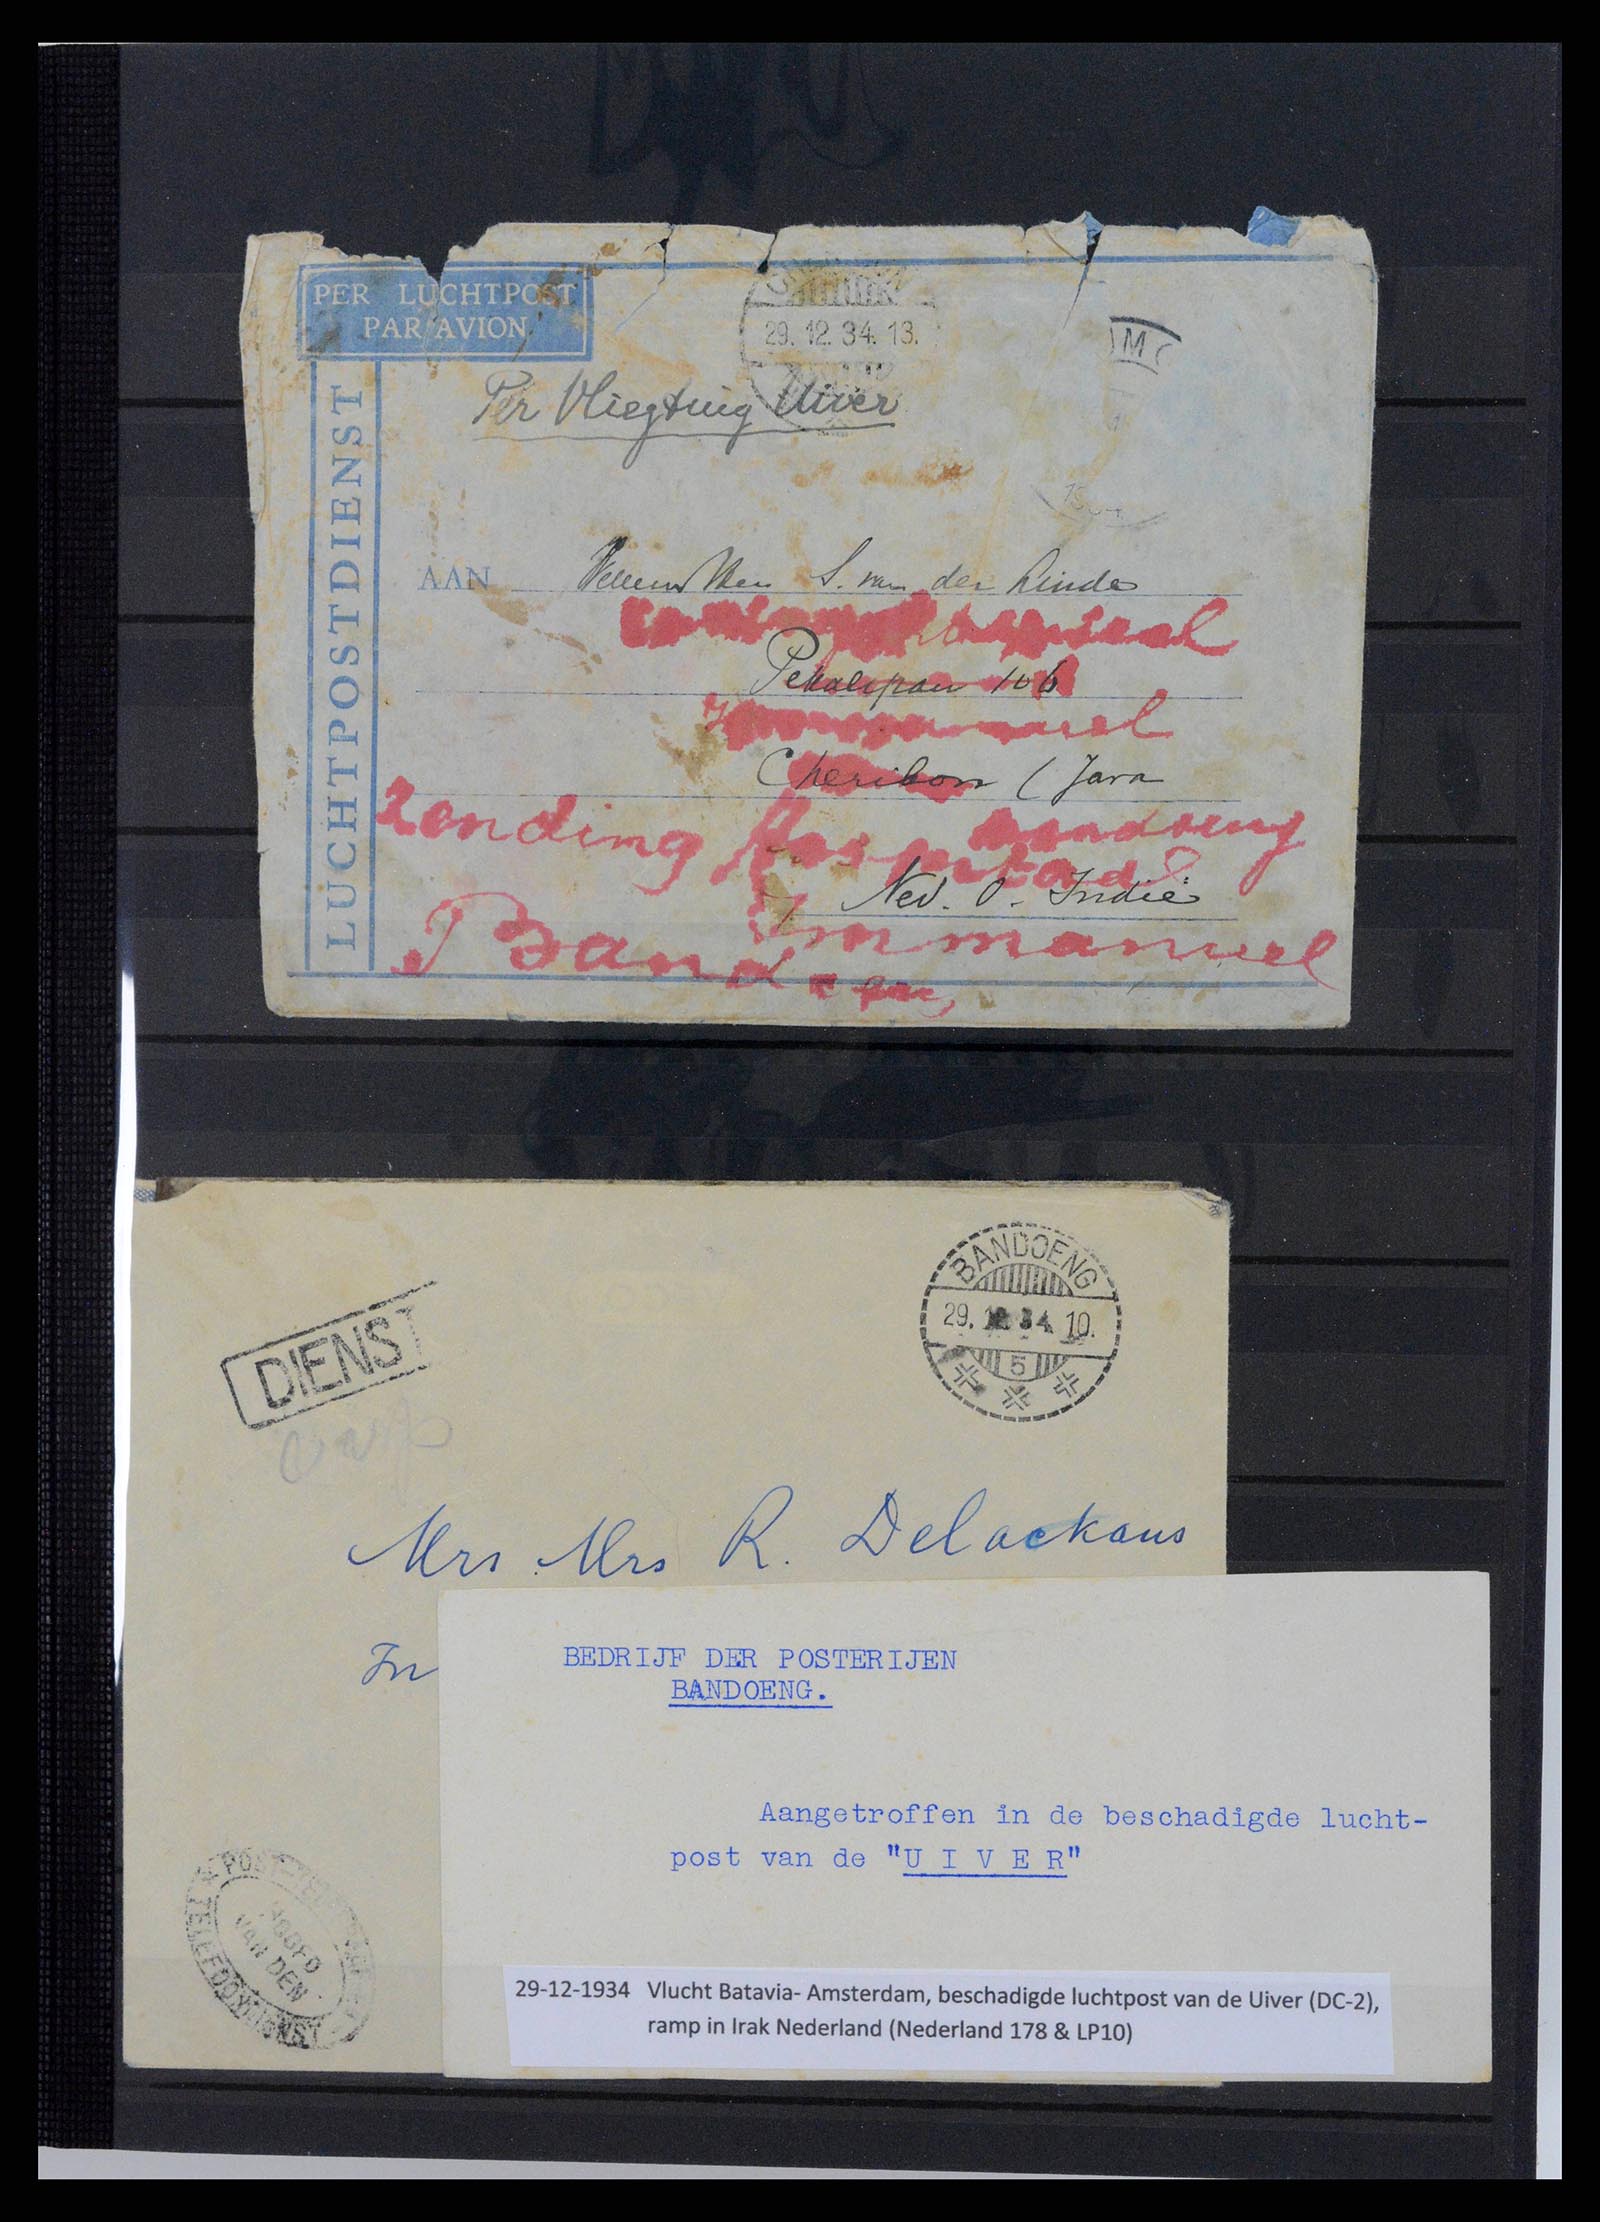 PER LUCHTPOST
PAR AVION
29. 12. 34. 13.
M
Per Vliegtuig Uiver
LUCHTPOSTDIENST
AAN S. van der Linde
Pekalipan 106
Cheribon (Java
Zending Hospitaal Bandoeng
Ned. O. Indië
Immanuel
Bandoeng
BANDOENG
29. 12 34. 10.
5
DIENST
Mrs Mrs R. Delackaus
In
BEDRIJF DER POSTERIJEN
BANDOENG.
Aangetroffen in de beschadigde lucht-
post van de "U I V E R"
POST-
HOOFD
VAN DEN
29-12-1934 Vlucht Batavia- Amsterdam, beschadigde luchtpost van de Uiver (DC-2),
ramp in Irak Nederland (Nederland 178 & LP10)